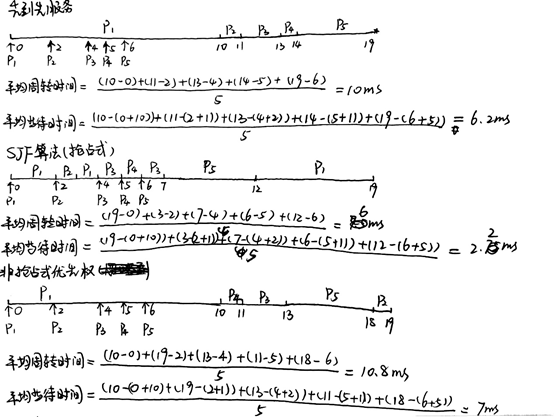 先到先服务
P₁ P₂ P₃ P₄ P₅
↑0 ↑2 ↑4 ↑5 ↑6 10 11 13 14 19
P₁ P₂ P₃ P₄ P₅
平均周转时间 = (10-0)+(11-2)+(13-4)+(14-5)+(19-6) / 5 = 10ms
平均等待时间 = (10-(0+10))+(11-(2+1))+(13-(4+2))+(14-(5+1))+(19-(6+5)) / 5 = 6.2ms
SJF算法(抢占式)
P₁ P₂ P₁ P₃ P₄ P₃ P₅ P₁
↑0 ↑2 ↑4 ↑5 ↑6 7 12 19
P₁ P₂ P₃ P₄ P₅
平均周转时间 = (19-0)+(3-2)+(7-4)+(6-5)+(12-6) / 5 = 6ms
平均等待时间 = (19-(0+10))+(3-(2+1))+(7-(4+2))+(6-(5+1))+(12-(6+5)) / 5 = 2.2ms
非抢占式优先权
P₁ P₄ P₃ P₅ P₂
↑0 ↑2 ↑4 ↑5 ↑6 10 11 13 18 19
P₁ P₂ P₃ P₄ P₅
平均周转时间 = (10-0)+(19-2)+(13-4)+(11-5)+(18-6) / 5 = 10.8ms
平均等待时间 = (10-(0+10))+(19-(2+1))+(13-(4+2))+(11-(5+1))+(18-(6+5)) / 5 = 7ms